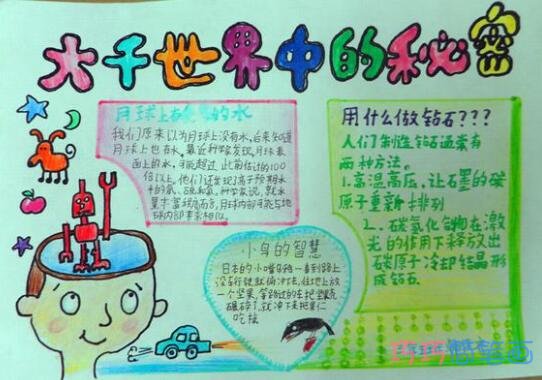 大千世界中的秘密
月球上有 的水
我们原来以为月球上没有水,后来知道
月球上也有水,最近科学家发现,月球表
面上的水,可能超过 此前估计的100
倍以上,他们还发现了高于预期水
中的氟、硫和氯,科学家说,就水
量丰富程度而言,月球内部可能与地
球内部非常相似。
用什么做钻石???
人们制造钻石通常有
两种方法。
1.高温高压,让石墨的碳
原子重新排列
2.碳氢化合物在激
光的作用下释放出
碳原子冷却结晶形
成钻石
小鸟的智慧
日本的小嘴乌鸦一看到路上
没车行驶就俯冲下去,往地上放
一个坚果,等路过的车把坚果壳
碾碎了,就冲下来把果仁
吃掉